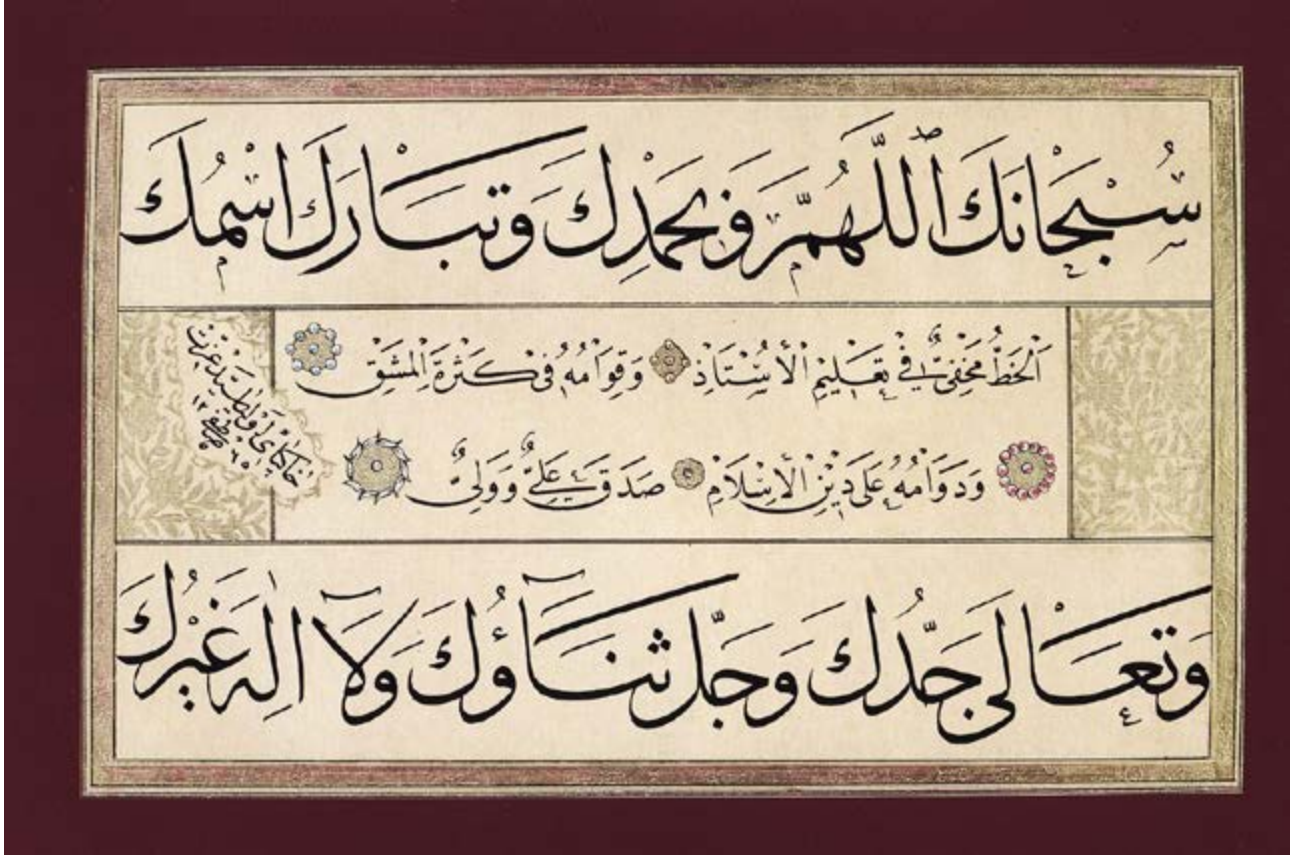 سُبْحَانَكَ ٱللَّهُمَّ وَبِحَمْدِكَ وَتَبَارَكَ اسْمُكَ
اَلْخَطُّ مَخْفِىٌّ فِى تَعْلِيْمِ الْأُسْتَاذِ وَقِوَامُهُ فِىْ كَثْرَةِ الْمَشْقِ
وَدَوَامُهُ عَلَى دِيْنِ الْإِسْلَامِ صَدَقَ عَلِىٌّ وَوَلِىٌّ
خاكپاى اوليا السيد عزت
وَتَعَالَى جَدُّكَ وَجَلَّ ثَنَآؤُكَ وَلَآ اِلٰهَ غَيْرُكَ